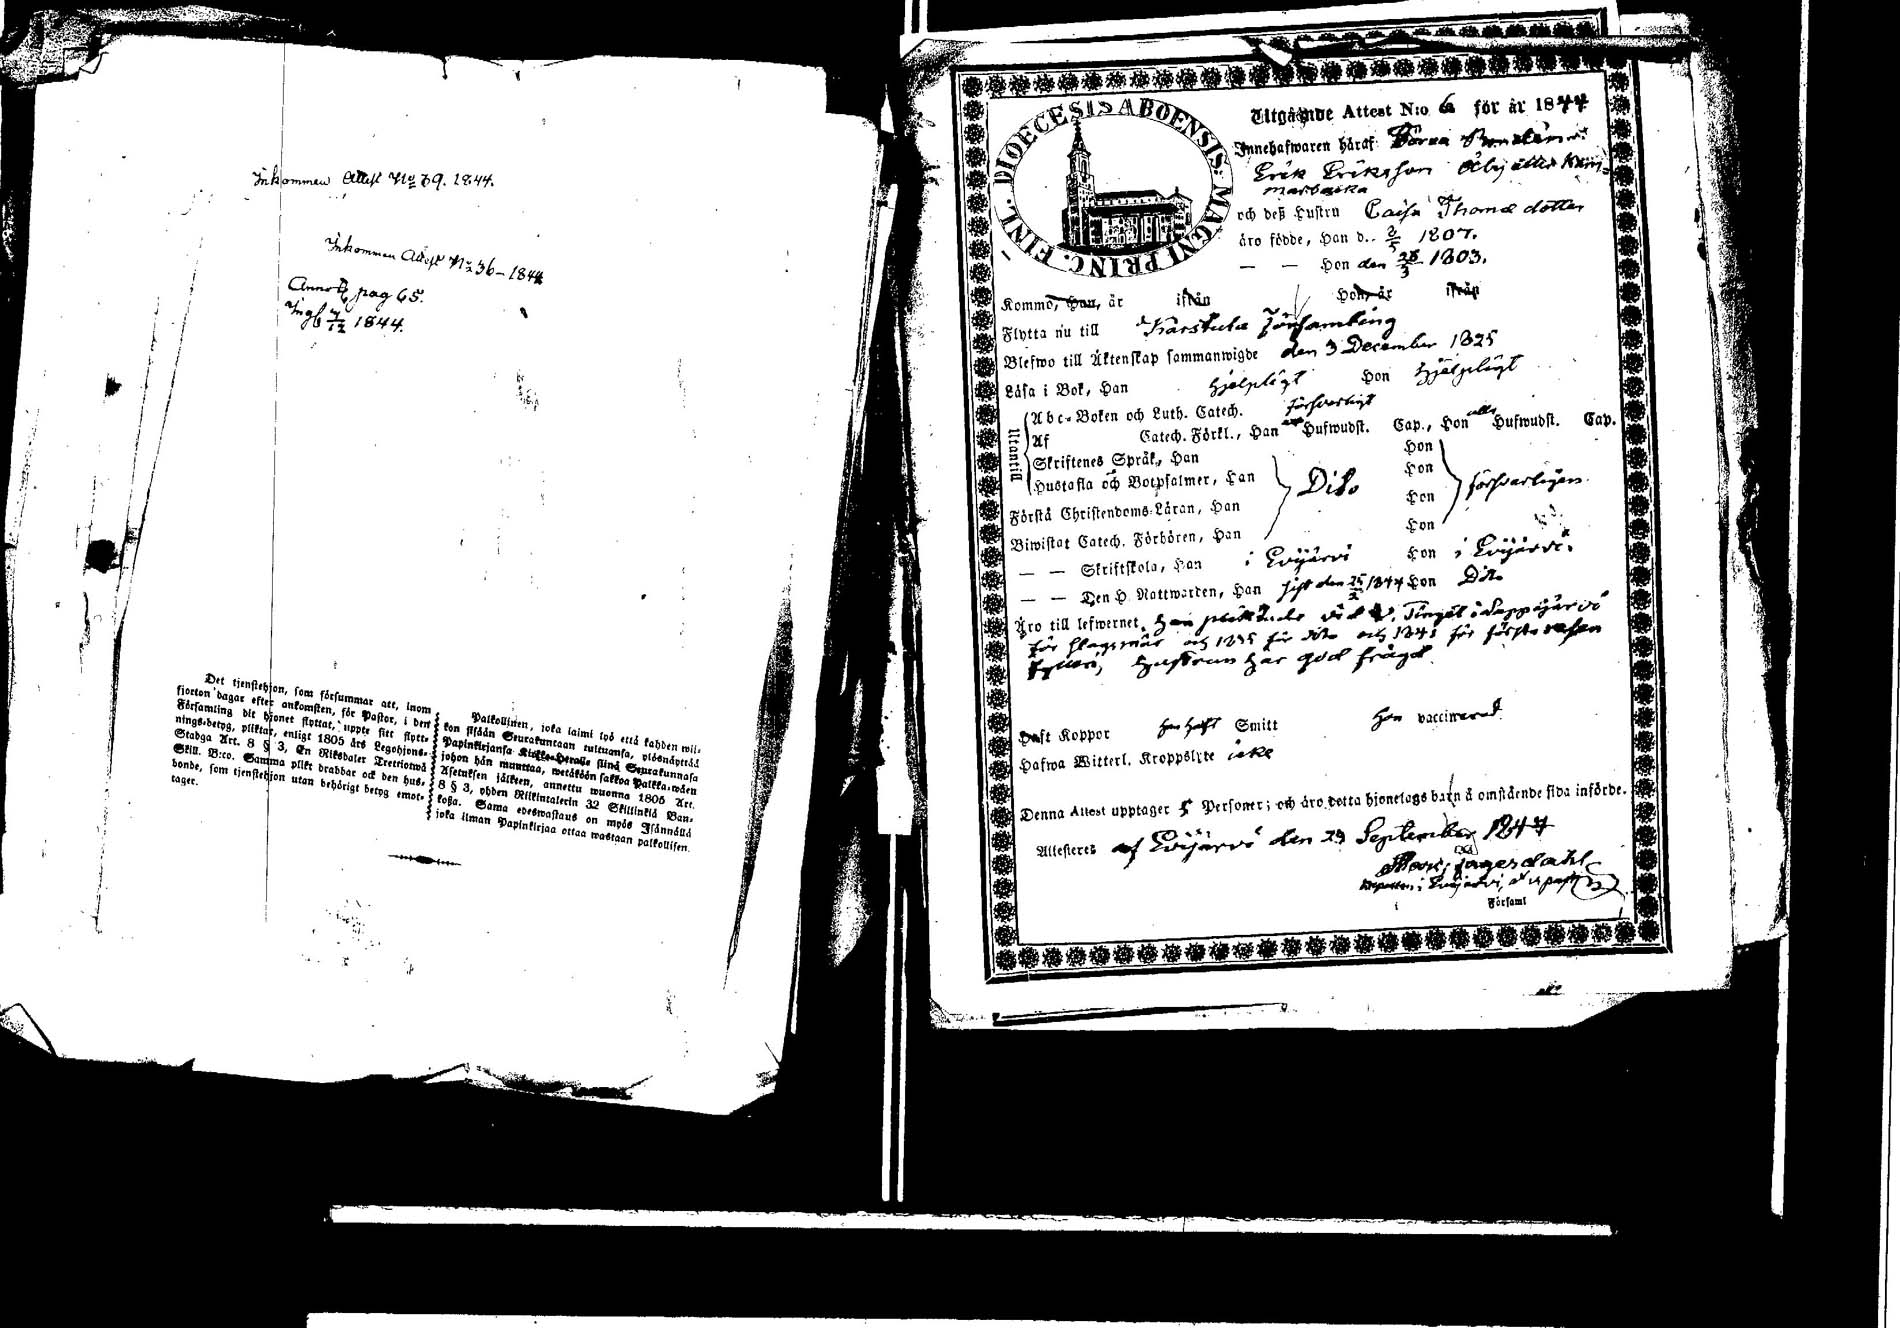 Inkommen Attest No 69. 1844.
Inkommen Attest No 36 - 1844
Annot. pag 65.
Ingf 7/12 1844.
Det tjenstehjon, som försummar att, inom
fjorton dagar efter ankomsten, för Pastor, i den
Församling dit hjonet flyttat, uppte sitt flytt-
nings-betyg, pliktar, enligt 1805 års Legohjons-
Stadga Art. 8 § 3, En Riksdaler Trettiotwå
Skill. B:co. Samma plikt drabbar ock den hus-
bonde, som tjenstehjon utan behörigt betyg emot-
tager.
Palkollinen, joka laimi lyö että kahden wii-
kon sisään Seurakuntaan tultuansa, ylösnäyttää
Papinkirjansa Kirkko-Herralle siinä Seurakunnasa
johon hän muuttaa, wetäköön sakkoa Palkka-wäen
Asetuksen jälkeen, annettu wuonna 1805 Art.
8 § 3, yhden Riikintalerin 32 Skillinkiä Ban-
koßa. Sama edeswastaus on myös Isännällä
joka ilman Papinkirjaa ottaa wastaan palkollisen.
FINL. DIOECESIS ABOENSIS: MAGNI PRINC.
Utgående Attest N:o 6 för år 1844
Innehafwaren häraf
Erik Eriksson
och deß Hustru Caisa Thomædotter
äro födde, Han d. 2/5 1807.
— — Hon den 28/3 1803.
Komme, Han, år ifrån Hon, år ifrån
Flytta nu till Karstula Församling
Blefwo till Äktenskap sammanwigde den 3 December 1825
Läsa i Bok, Han hjelpligt Hon hjelpligt
Utantill
Abc-Boken och Luth. Catech. försvarligt
Af Catech. Förkl., Han Hufwudst. Cap., Hon alla Hufwudst. Cap.
Skriftenes Språk, Han Hon
Hustafla och Botpsalmer, Han Dito Hon försvarligen
Förstå Christendoms-Läran, Han Hon
Biwistat Catech. Förhören, Han Hon
— — Skriftskola, Han i Evijärvi Hon i Evijärvi.
— — Den H. Nattwarden, Han sist den 25/2 1844 Hon Dito
Äro till lefwernet, Han vid Tinget i Lappajärvi
för slagsmål och 1835 för dito och 1841 för första resan
hustrun har god frägd.
Haft Koppor Han haft Smitt Hon vaccinerad
Hafwa Witterl. Kroppslyte icke
Denna Attest upptager 5 Personer; och äro detta hjonelags barn å omstående sida införde.
Attesteres af Evijärvi den 29 September 1844
Fagerdahl
i Evijärvi,
Församl